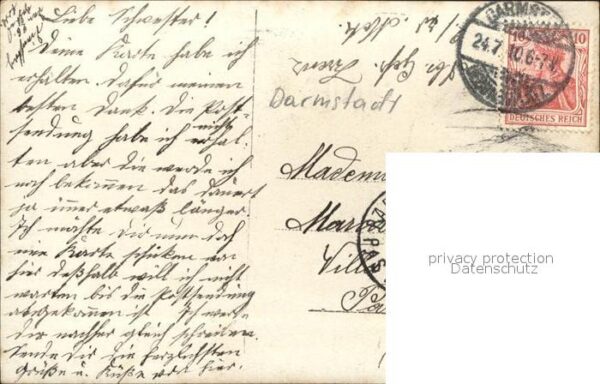 Liebe Schwester!
Deine Karte habe ich
erhalten dafür meinen
besten Dank. Die Post-
sendung habe ich nicht erhal-
ten aber die werde ich
noch bekommen das dauert
ja immer etwaß länger.
Ich möchte dir nun doch
eine Karte schicken von
hier deßhalb will ich nicht
warten bis die Postsendung
angekommen ist Ich werde
dir nachher gleich schreiben.
Sende dir die herzlichsten
Grüße u. Küße von hier.
Darmstadt
DARMST
24.7.10.6-7
10
DEUTSCHES REICH
Madem
Mar
Ville
Pa
privacy protection
Datenschutz